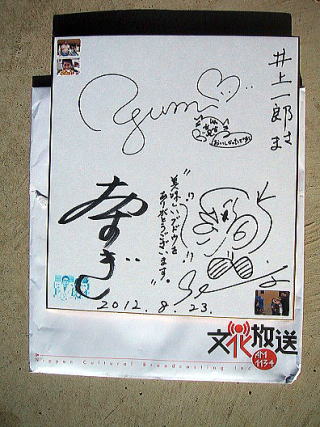 井上一郎さま
ayumi
おいしかったです
美味しいブドウを
ありがとうございます。
2012. 8. 23.
文化放送
AM
1134
Nippon Cultural Broadcasting Inc.